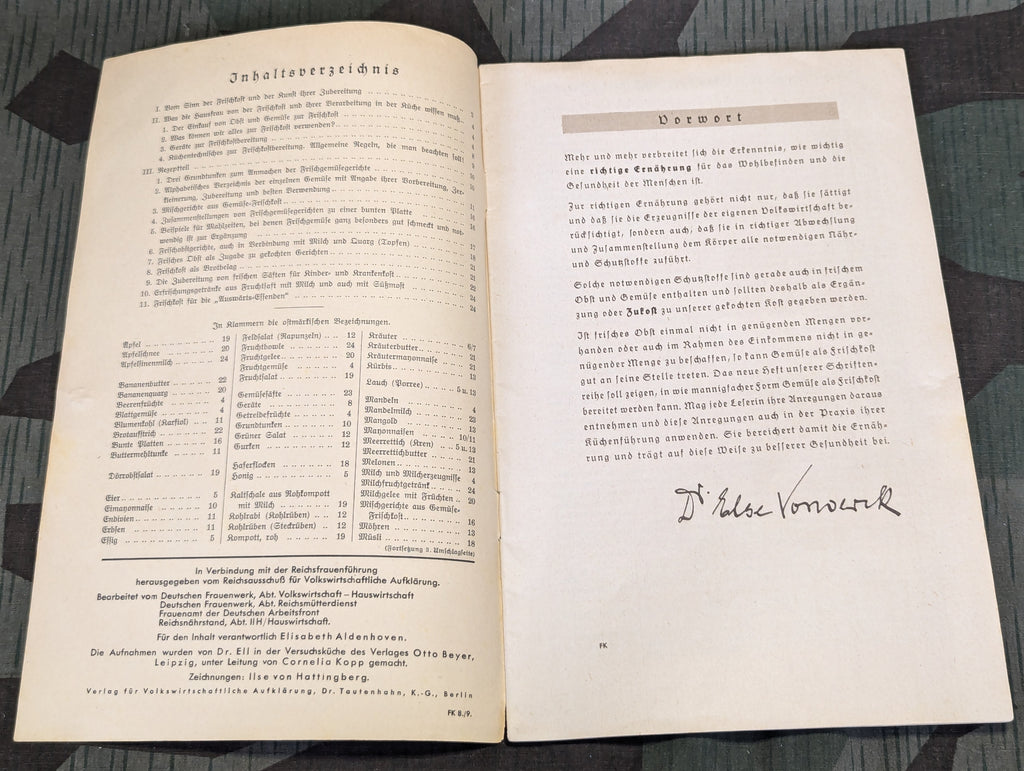 Inhaltsverzeichnis
I. Vom Sinn der Frischkost und der Kunst ihrer Zubereitung
II. Was die Hausfrau von der Frischkost und ihrer Verarbeitung in der Küche wissen muß
1. Der Einkauf von Obst und Gemüse zur Frischkost
2. Was können wir alles zur Frischkost verwenden?
3. Geräte zur Frischkostbereitung
4. Küchentechnisches zur Frischkostbereitung. Allgemeine Regeln, die man beachten soll
III. Rezeptteil
1. Drei Grundtunken zum Anmachen der Frischgemüsegerichte
2. Alphabetisches Verzeichnis der einzelnen Gemüse mit Angabe ihrer Vorbereitung, Zer-
kleinerung, Zubereitung und besten Verwendung
3. Mischgerichte aus Gemüse-Frischkost
4. Zusammenstellungen von Frischgemüsegerichten zu einer bunten Platte
5. Beispiele für Mahlzeiten, bei denen Frischgemüse ganz besonders gut schmeckt und not-
wendig ist zur Ergänzung
6. Frischobstgerichte, auch in Verbindung mit Milch und Quarg (Topfen)
7. Frisches Obst als Zugabe zu gekochten Gerichten
8. Frischkost als Brotbelag
9. Die Zubereitung von frischen Säften für Kinder- und Krankenkost
10. Erfrischungsgetränke aus Fruchtsaft mit Milch und auch mit Süßmost
11. Frischkost für die „Auswärts-Essenden“
In Klammern die ostmärkischen Bezeichnungen.
Apfel 19
Apfelschnee 20
Apfelsinenmilch 24
Bananenbutter 22
Bananenquarg 20
Beerenfrüchte 4
Blattgemüse 4
Blumenkohl (Karfiol) 11
Brotaufstrich 22
Bunte Platten 16
Buttermehltunke 11
Dörrobstsalat 19
Eier 5
Eimayonnaise 10
Endivien 11
Erbsen 11
Essig 5
Feldsalat (Rapunzeln) 12
Fruchtbowle 24
Fruchtgelee 20
Fruchtgemüse 4
Fruchtsalat 19
Gemüsesäfte 23
Geräte 8
Getreidefrüchte 4
Grundtunken 10
Grüner Salat 12
Gurken 12
Haferflocken 18
Honig 5
Kaltschale aus Rohkompott
mit Milch 19
Kohlrabi (Kohlrüben) 12
Kohlrüben (Steckrüben) 12
Kompott, roh 19
Kräuter 6/7
Kräuterbutter 21
Kräutermayonnaise 21
Kürbis 13
Lauch (Porree) 5 u. 13
Mandeln 4
Mandelmilch 23
Mangold 13
Mayonnaisen 10/11
Meerrettich (Kren) 5 u. 13
Meerrettichbutter 21
Melonen 13
Milch und Milcherzeugnisse 4
Milchfruchtgetränk 24
Milchgelee mit Früchten 20
Mischgerichte aus Gemüse-
Frischkost 16
Möhren 13
Müsli 18
(Fortsetzung 3. Umschlagseite)
In Verbindung mit der Reichsfrauenführung
herausgegeben vom Reichsausschuß für Volkswirtschaftliche Aufklärung.
Bearbeitet vom Deutschen Frauenwerk, Abt. Volkswirtschaft – Hauswirtschaft
Deutschen Frauenwerk, Abt. Reichsmütterdienst
Frauenamt der Deutschen Arbeitsfront
Reichsnährstand, Abt. II H/Hauswirtschaft.
Für den Inhalt verantwortlich Elisabeth Aldenhoven.
Die Aufnahmen wurden von Dr. Ell in der Versuchsküche des Verlages Otto Beyer,
Leipzig, unter Leitung von Cornelia Kopp gemacht.
Zeichnungen: Ilse von Hattingberg.
Verlag für Volkswirtschaftliche Aufklärung, Dr. Tautenhahn, K.-G., Berlin
FK 8./9.
Vorwort
Mehr und mehr verbreitet sich die Erkenntnis, wie wichtig
eine richtige Ernährung für das Wohlbefinden und die
Gesundheit der Menschen ist.
Zur richtigen Ernährung gehört nicht nur, daß sie sättigt
und daß sie die Erzeugnisse der eigenen Volkswirtschaft be-
rücksichtigt, sondern auch, daß sie in richtiger Abwechslung
und Zusammenstellung dem Körper alle notwendigen Nähr-
und Schutzstoffe zuführt.
Solche notwendigen Schutzstoffe sind gerade auch in frischem
Obst und Gemüse enthalten und sollten deshalb als Ergän-
zung oder Zukost zu unserer gekochten Kost gegeben werden.
Ist frisches Obst einmal nicht in genügenden Mengen vor-
handen oder auch im Rahmen des Einkommens nicht in ge-
nügender Menge zu beschaffen, so kann Gemüse als Frischkost
gut an seine Stelle treten. Das neue Heft unserer Schriften-
reihe soll zeigen, in wie mannigfacher Form Gemüse als Frischkost
bereitet werden kann. Mag jede Leserin ihre Anregungen daraus
entnehmen und diese Anregungen auch in der Praxis ihrer
Küchenführung anwenden. Sie bereichert damit die Ernäh-
rung und trägt auf diese Weise zu besserer Gesundheit bei.
Dr. Else Vorwerck
FK